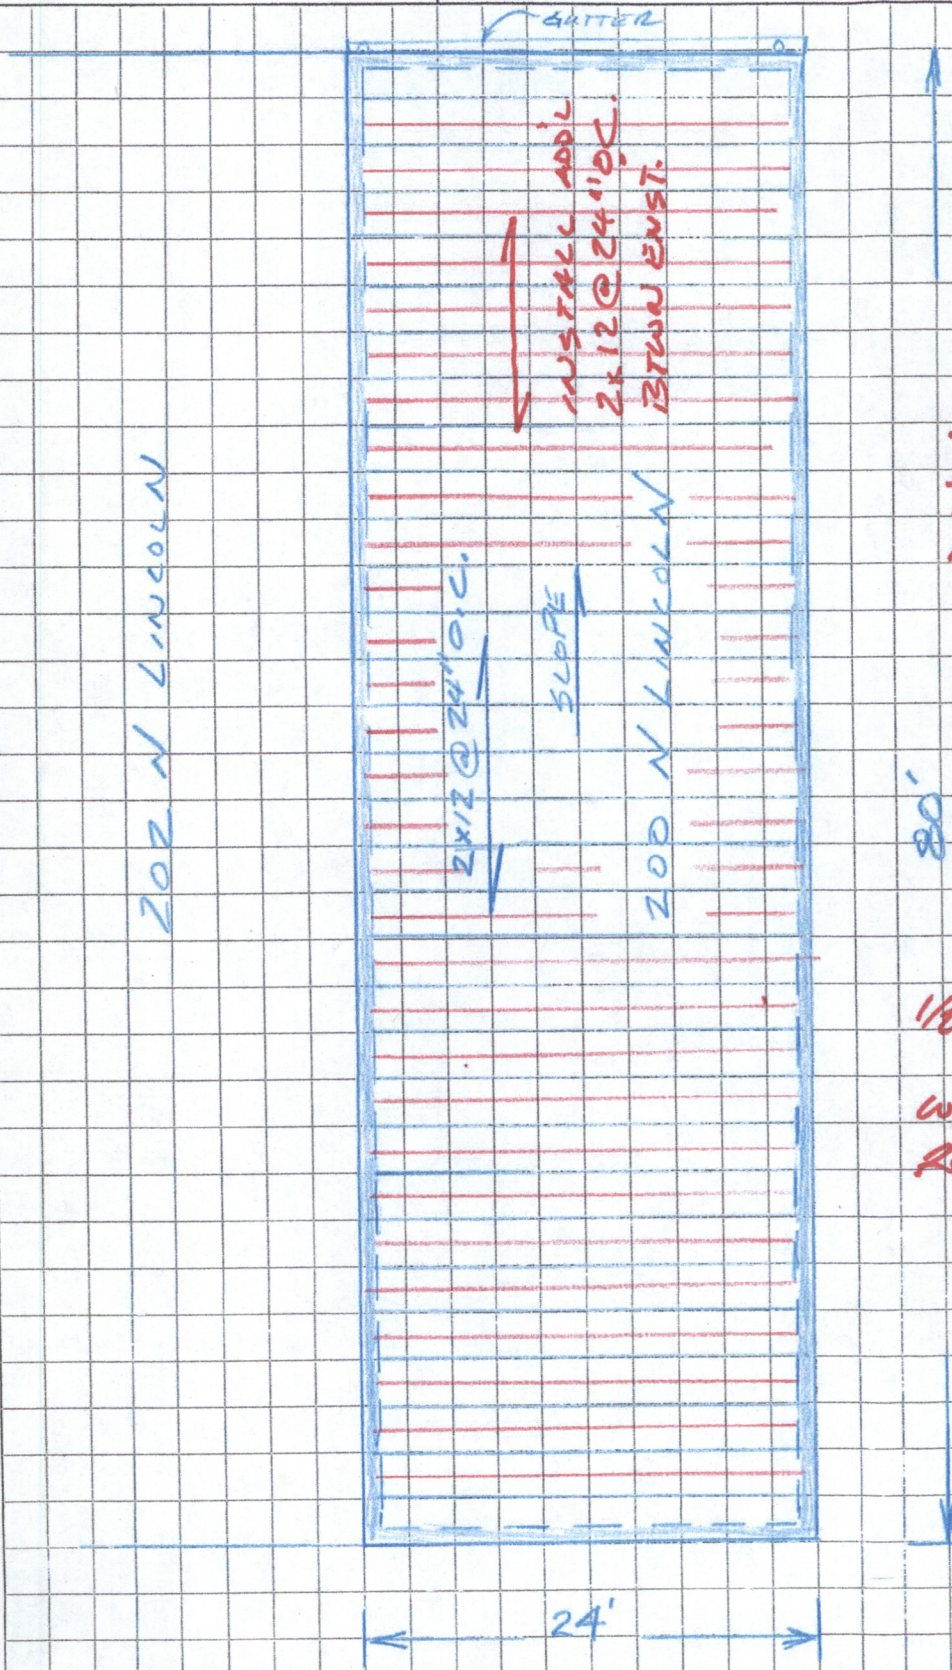 GUTTER
INSTALL ADD'L
2x12 @ 24" OC.
BTWN EXST.
202 N LINCOLN
2x12 @ 24" O.C.
SLOPE
200 N LINCOLN
80'
24'